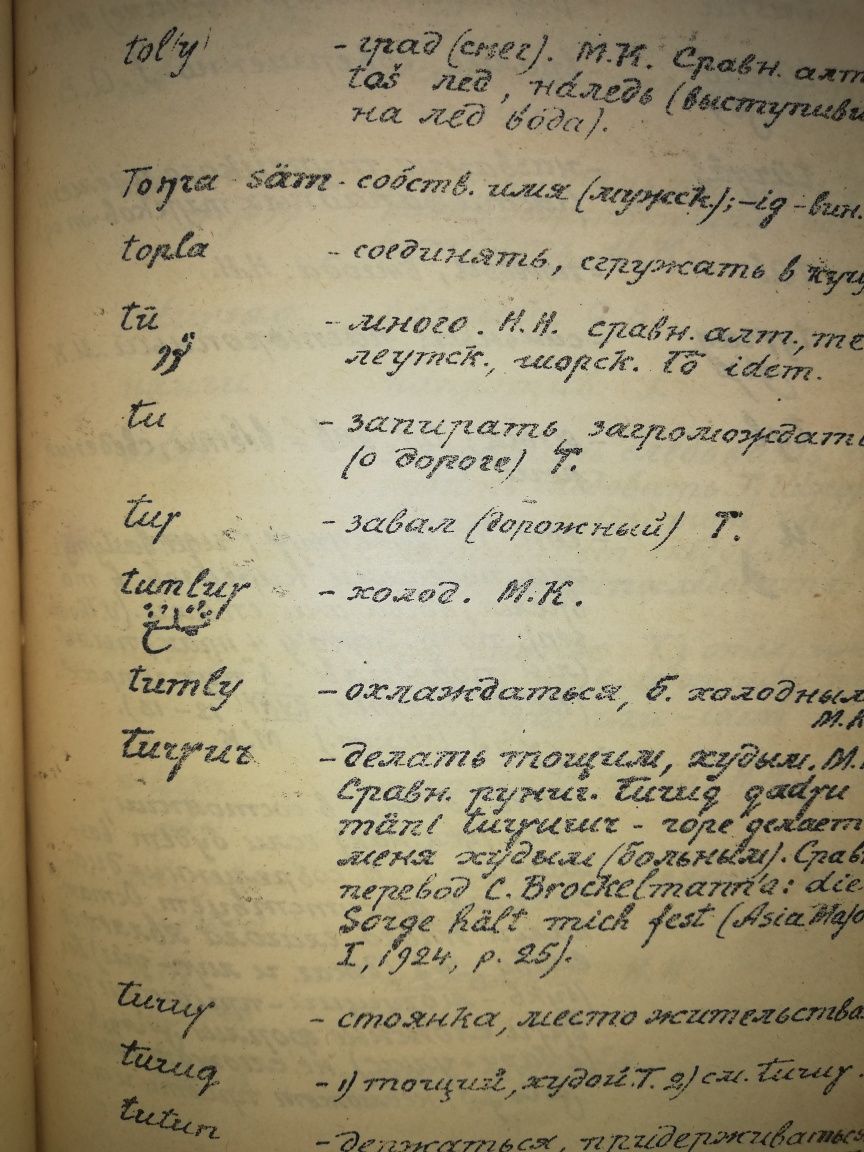 tol(y) - град (снег). М.К. Сравн. алт
toš лед, наледь (выступивш
на лед вода).
Toŋra säm - собств. имя (мужск); -ig - вин.
topla - соединять, сгружать в кучу
tü - много. Н.Н. сравн. алт., те
леутск., шорск. tō idem.
tu - запирать, загромождать
(о дороге) Т.
tuγ - завал (дорожный) Т.
tumluγ - холод. М.К.
tumly - охлаждаться, б. холодным
М.К
turγur - делать тощим, худым. М.К
Сравн. рунич. turuq qadγu
mäni turγurur - горе делает
меня худым (больным). Срав
перевод C. Brockelmann'a: die
Sorge hält mich fest (Asia Majo
I, 1924, p. 25).
turuγ - стоянка, место жительства
turuq - 1) тощий, худой. Т. 2) см. turuγ.
tutun - держаться, придерживаться